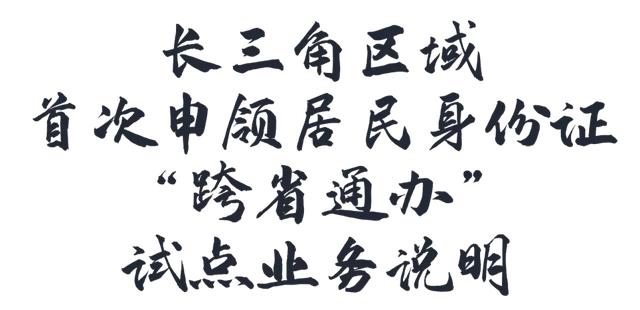 长三角区域
首次申领居民身份证
“跨省通办”
试点业务说明